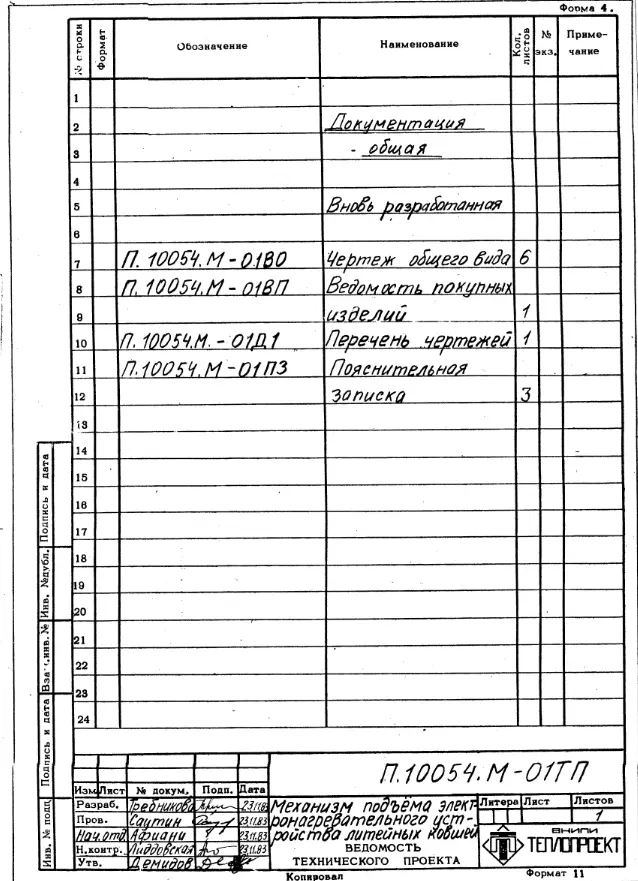 Форма 4.
№ строки Формат Обозначение Наименование Кол. листов № экз. Приме-чание
1
2 Документация
3 - общая
4
5 Вновь разработанная
6
7 П. 10054.М-01ВО Чертеж общего вида 6
8 П. 10054.М-01ВП Ведомость покупных
9 изделий 1
10 П. 10054.М.-01Д1 Перечень чертежей 1
11 П.10054.М-01ПЗ Пояснительная
12 записка 3
13
14
15
16
17
18
19
20
21
22
23
24
Подпись и дата
Инв. №дубл.
Взам.инв.№
Подпись и дата
Инв. № подл
П.10054.М-01ТП
Изм Лист № докум. Подп. Дата
Разраб. 23.11.83
Пров. Саутин 23.11.83
Нач.отд. Афиани 23.11.83
Н.контр. 23.11.83
Утв. Демидов
Механизм подъёма элект-
ронагревательного уст-
ройства литейных ковшей
ВЕДОМОСТЬ
ТЕХНИЧЕСКОГО ПРОЕКТА
Литера Лист Листов
1
ВНИПИ
ТЕПЛОПРОЕКТ
Копировал Формат 11